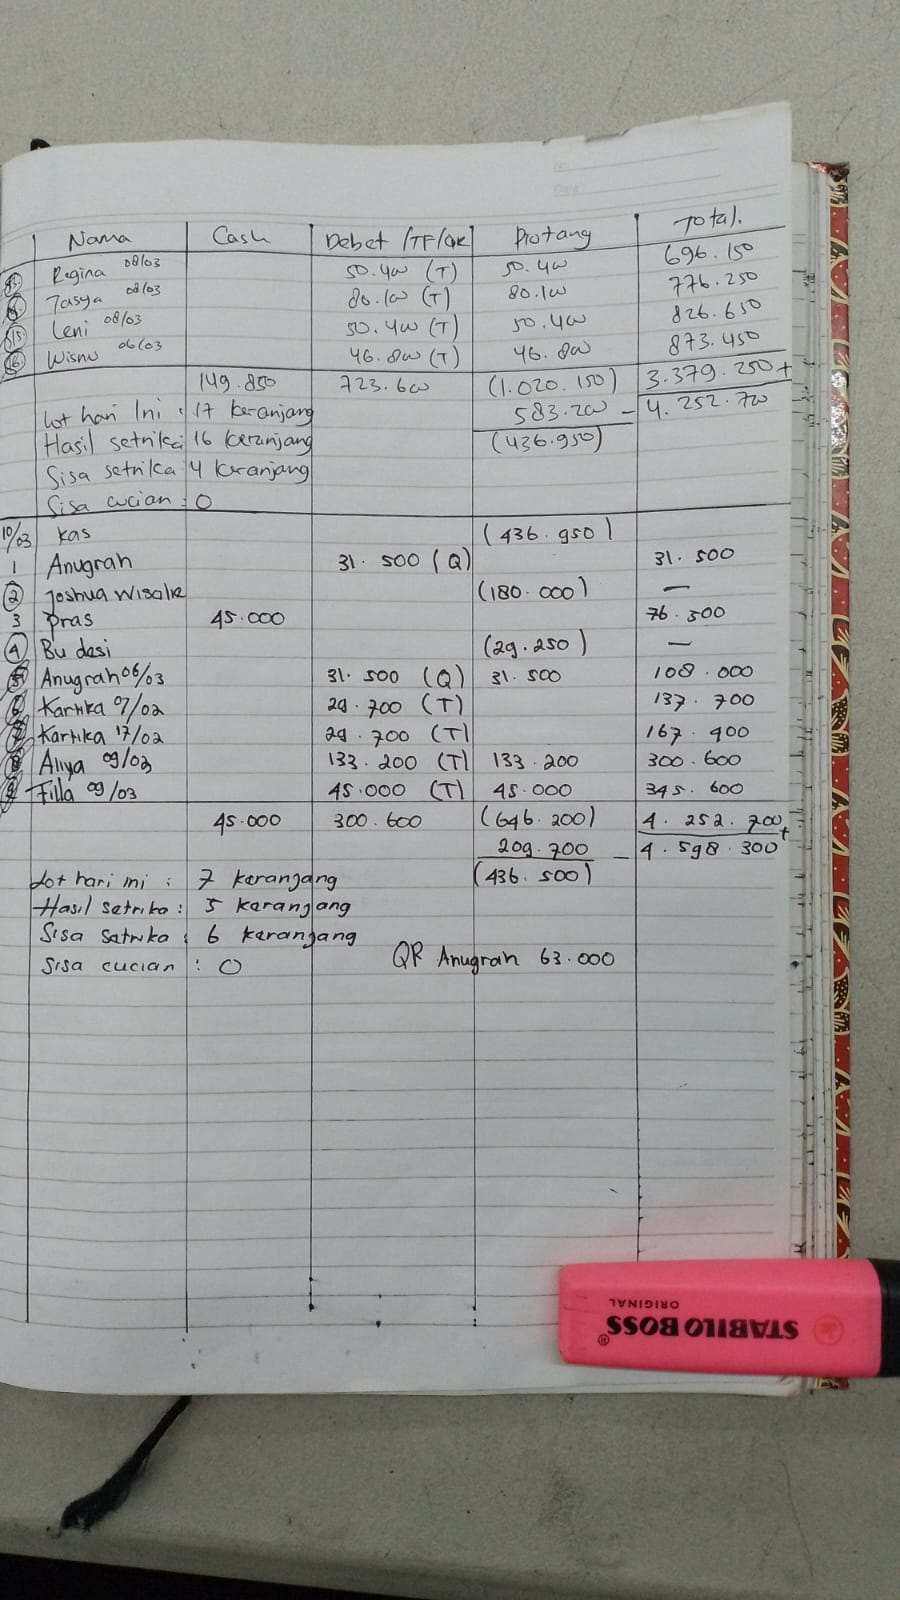 No.
Date
Nama Cash Debet /TF/QR Piutang Total.
Regina 08/03 50.400 (T) 50.400 696.150
Tasya 08/03 80.100 (T) 80.100 776.250
Leni 08/03 50.400 (T) 50.400 826.650
Wisnu 06/03 46.800 (T) 46.800 873.450
149.850 723.600 (1.020.150) 3.379.250 +
Lot hari Ini : 17 keranjang 583.200 - 4.252.700
Hasil setrika 16 keranjang (436.950)
Sisa setrika 4 keranjang
Sisa cucian : 0
10/03 kas (436.950)
1 Anugrah 31.500 (Q) 31.500
2 Joshua Wisolie (180.000) —
3 pras 45.000 76.500
4 Bu desi (29.250) —
5 Anugrah 06/03 31.500 (Q) 31.500 108.000
6 Kartika 07/02 29.700 (T) 137.700
7 Kartika 17/02 29.700 (T) 167.400
8 Aliya 09/03 133.200 (T) 133.200 300.600
9 Filla 09/03 45.000 (T) 45.000 345.600
45.000 300.600 (646.200) 4.252.700 +
209.700 - 4.598.300
Lot hari ini : 7 keranjang (436.500)
Hasil setrika : 5 keranjang
Sisa setrika : 6 keranjang
Sisa cucian : 0 QR Anugrah 63.000
STABILO BOSS®
ORIGINAL